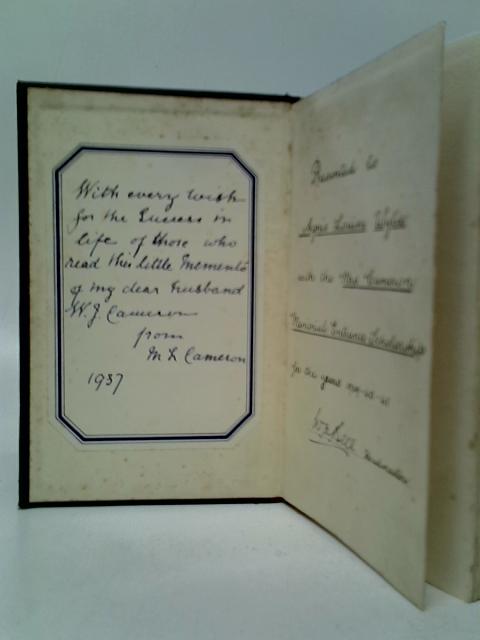 With every wish
for the Success in
life of those who
read this little Memento
of my dear Husband
W. J. Cameron
from
M L Cameron
1937
Presented to
Louise
with the Cameron
Memorial Entrance Scholarship
for the year
Headmaster